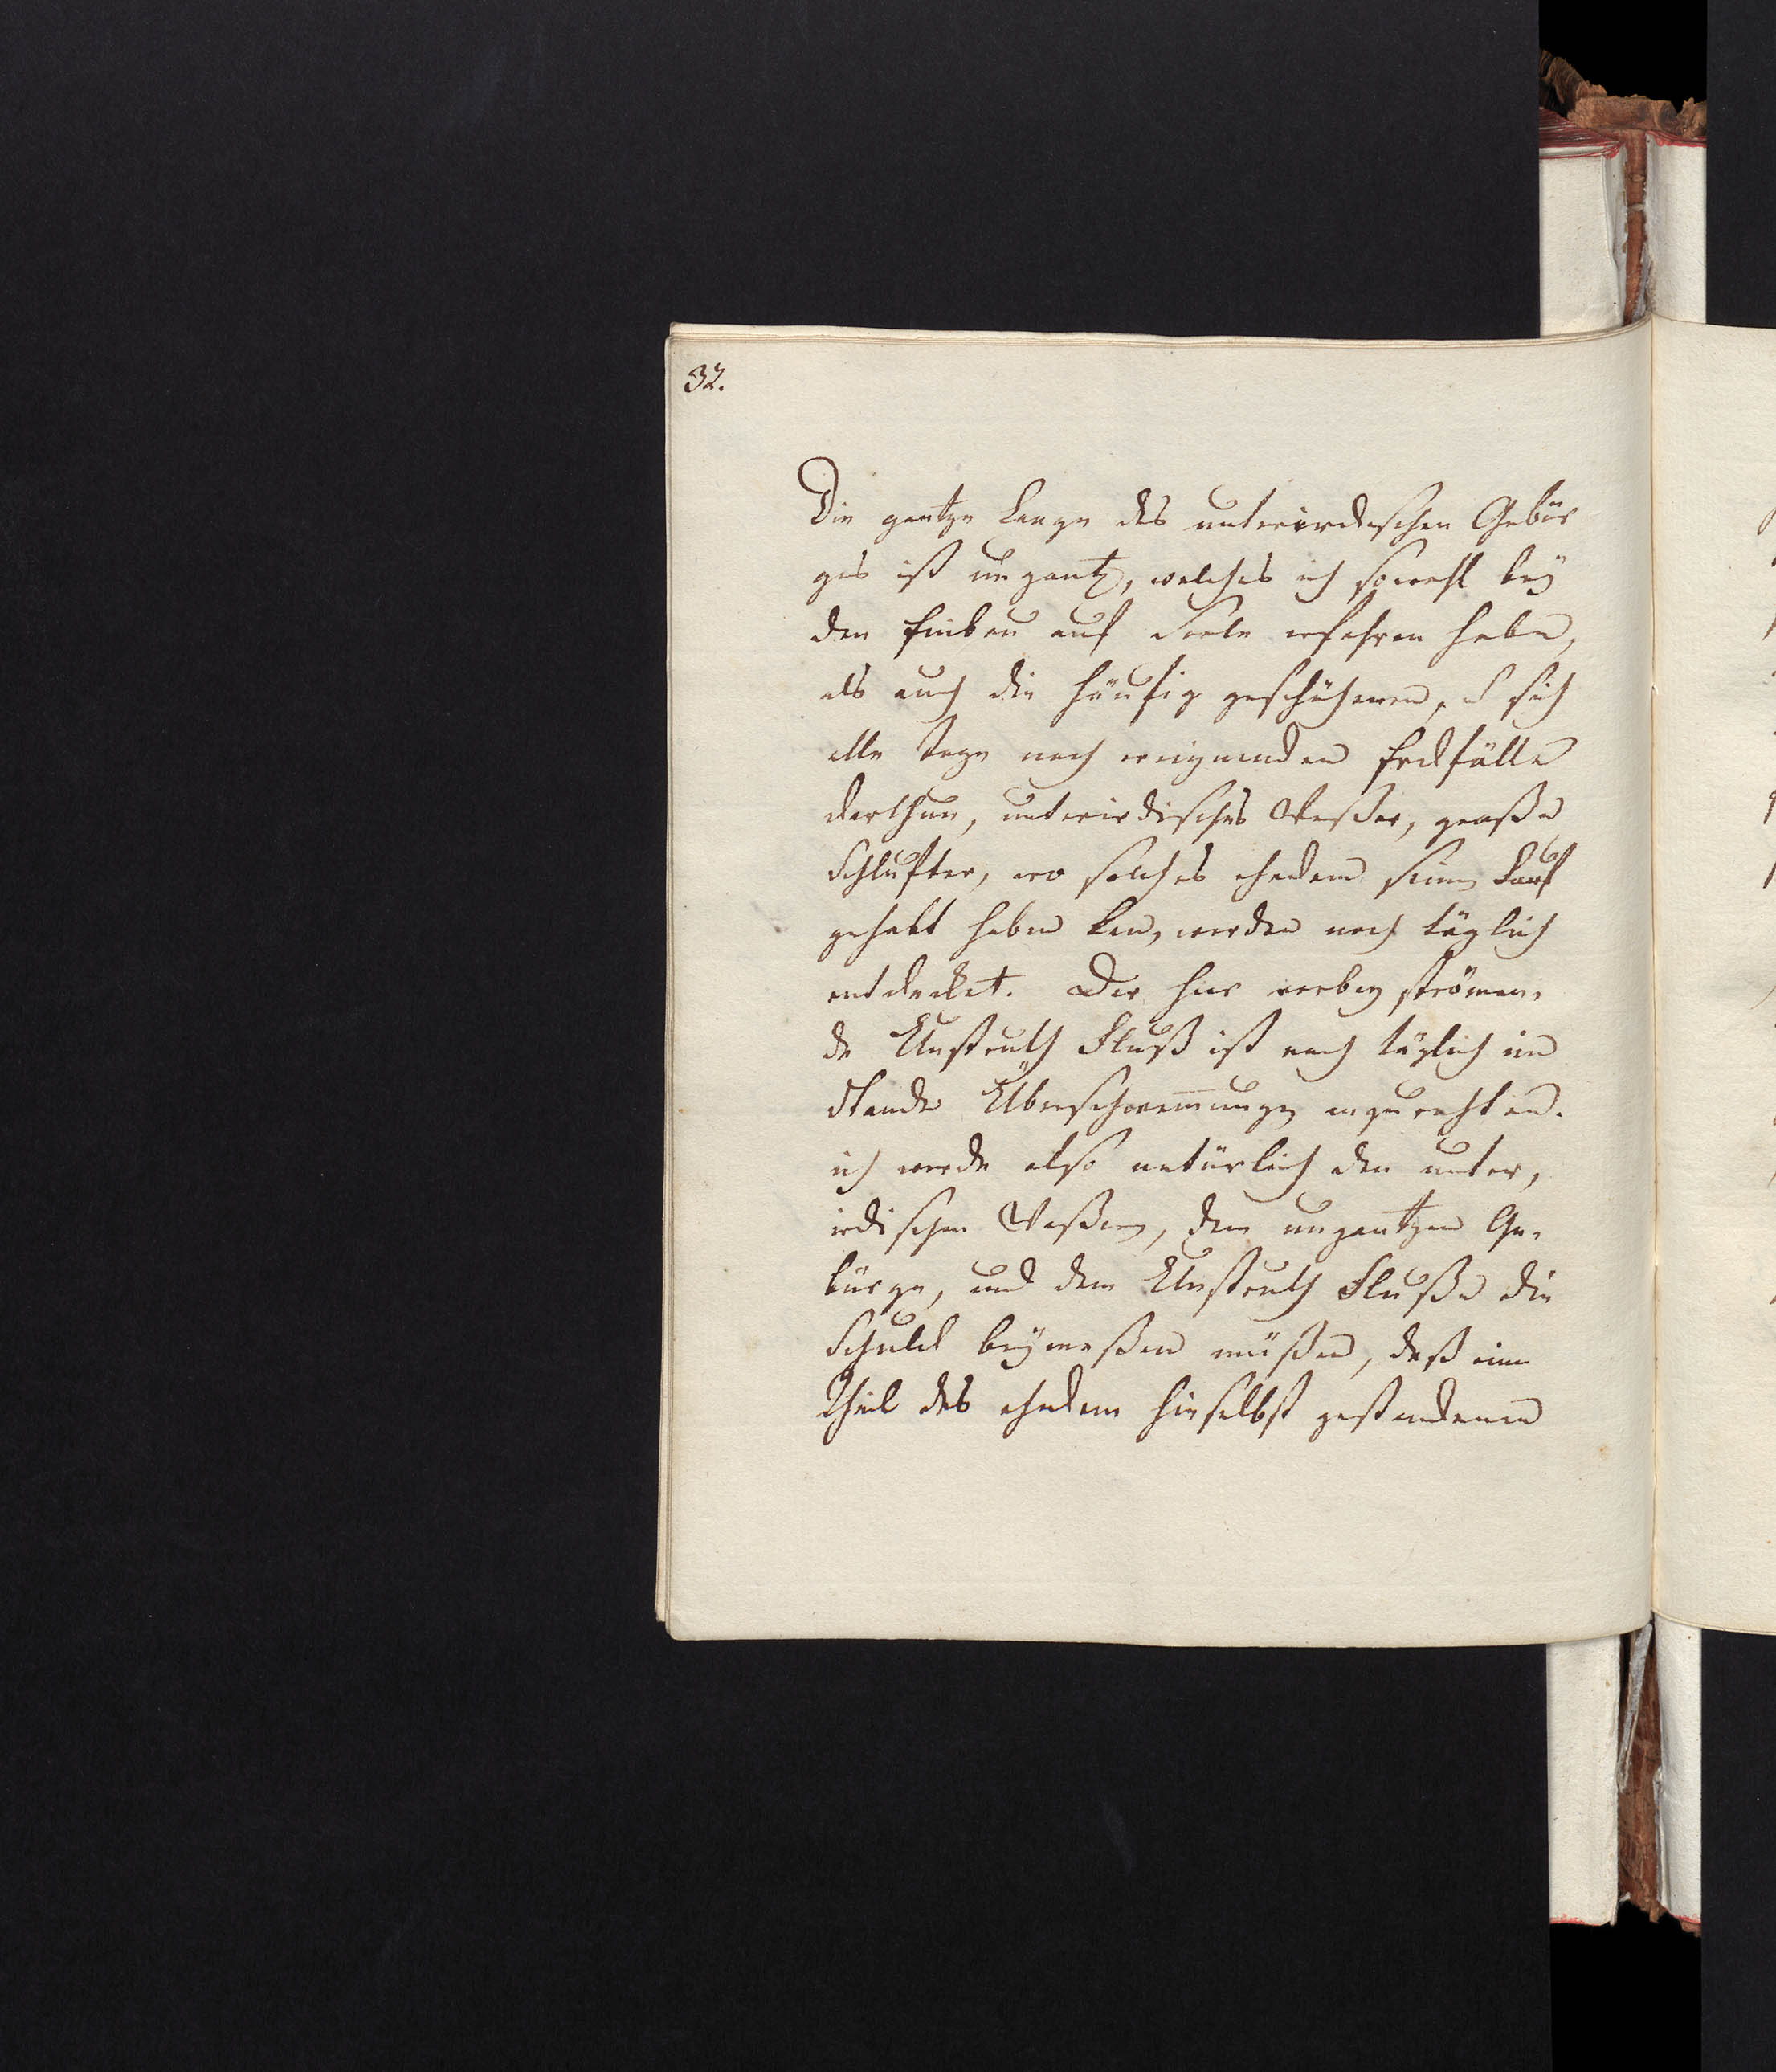 32.
Die gantze Lage des unterirrdischen Gebür
ges ist ungantz, welches ich sowohl bey
den Einbau auf Soole erfahren habe,
als auch die häufig geschehenen, u sich
alle Tage noch ereignenden Erdfälle
darthun, unterirdisches Waßer, große
Schlufter, wo solches ehedem seinen Lauf
gehabt haben kan, werden noch täglich
entdecket. Der hier vorbey strömen,
de Unstruth Fluß ist noch täglich im
Stande Überschwemungen anzurichten.
ich werde also natürlich den unter,
irdischen Waßern, dem ungantzen Ge,
bürge, und dem Unstruth Fluße die
Schuld beymeßen müßen, daß ein
Theil des ehedem hieselbst gestandenen